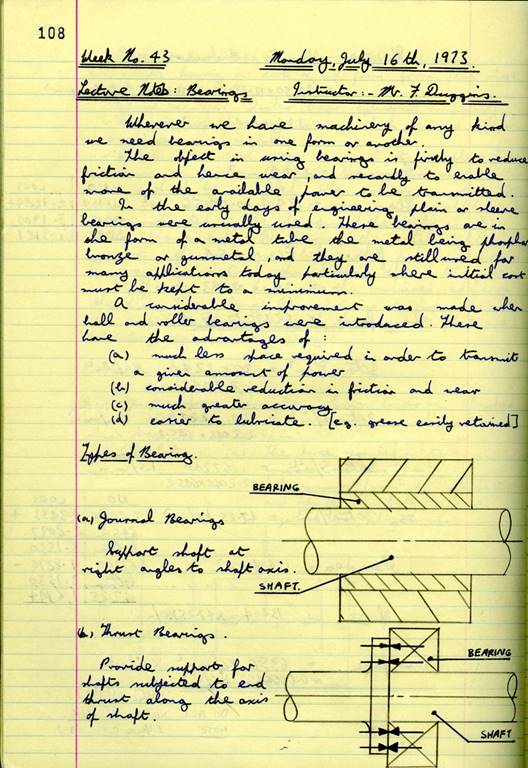 108
Week No. 43 Monday, July 16th, 1973.
Lecture Notes: Bearings Instructor:- Mr. F. Duggins.
Wherever we have machinery of any kind
we need bearings in one form or another.
The object in using bearings is firstly to reduce
friction and hence wear, and secondly to enable
more of the available power to be transmitted.
In the early days of engineering plain or sleeve
bearings were usually used. These bearings are in
the form of a metal tube the metal being phosphor
bronze or gunmetal, and they are still used for
many applications today particularly where initial cost
must be kept to a minimum.
A considerable improvement was made when
ball and roller bearings were introduced. These
have the advantages of :
(a) much less space required in order to transmit
a given amount of power
(b) considerable reduction in friction and wear
(c) much greater accuracy
(d) easier to lubricate. [e.g. grease easily retained]
Types of Bearing.
BEARING
(a) Journal Bearings
Support shaft at
right angles to shaft axis.
SHAFT.
(b) Thrust Bearings.
BEARING
Provide support for
shafts subjected to end
thrust along the axis
of shaft.
SHAFT